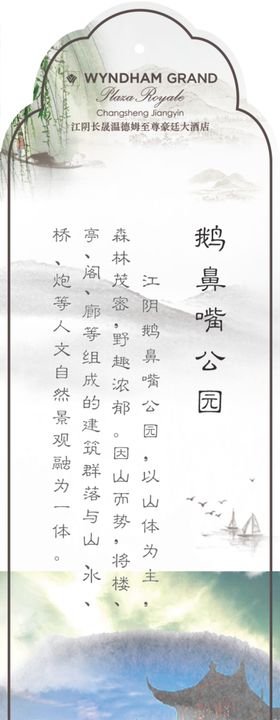 WYNDHAM GRAND
Plaza Royale
Changsheng Jiangyin
江阴长晟温德姆至尊豪廷大酒店
鹅鼻嘴公园
江阴鹅鼻嘴公园，以山体为主，
森林茂密，野趣浓郁。因山而势，将楼、
亭、阁、廊等组成的建筑群落与山、水、
桥、炮等人文自然景观融为一体。